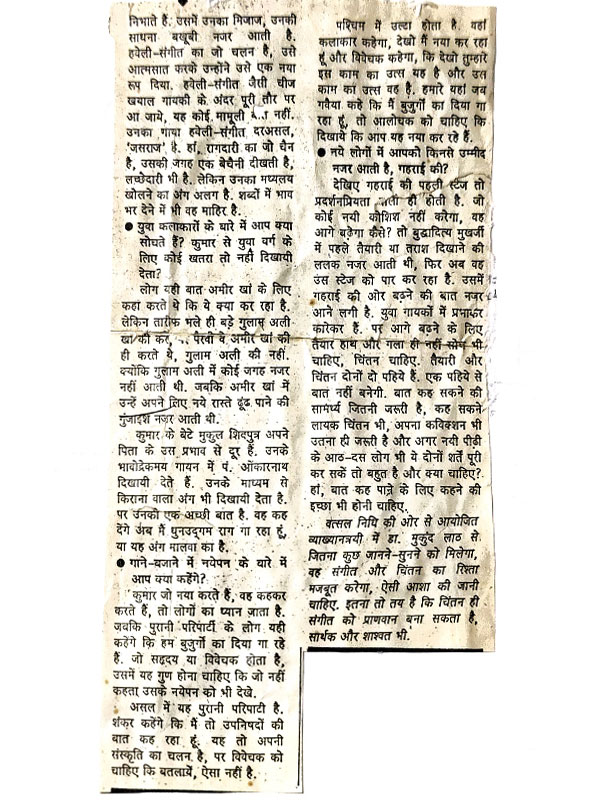 निभाते हैं. उसमें उनका मिजाज, उनकी
साधना बखूबी नजर आती है.
हवेली-संगीत का जो चलन है, उसे
आत्मसात करके उन्होंने उसे एक नया
रूप दिया. हवेली-संगीत जैसी चीज
खयाल गायकी के अंदर पूरी तौर पर
आ जाये, यह कोई मामूली नहीं.
उनका गाया हवेली-संगीत दरअसल,
'जसराज' है. हां, रागदारी का जो चैन
है, उसकी जगह एक बेचैनी दीखती है,
लच्छेदारी भी है. लेकिन उनका मध्यलय
खोलने का अंग अलग है. शब्दों में भाव
भर देने में भी वह माहिर है.
● युवा कलाकारों के बारे में आप क्या
सोचते हैं? कुमार से युवा वर्ग के
लिए कोई खतरा तो नहीं दिखायी
देता?
लोग यही बात अमीर खां के लिए
कहा करते थे कि ये क्या कर रहा है.
लेकिन तारीफ भले ही बड़े गुलाम अली
खां की कर, पैरवी वे अमीर खां की
ही करते थे, गुलाम अली की नहीं.
क्योंकि गुलाम अली में कोई जगह नजर
नहीं आती थी. जबकि अमीर खां में
उन्हें अपने लिए नये रास्ते ढूंढ़ पाने की
गुंजाइश नजर आती थी.
कुमार के बेटे मुकुल शिवपुत्र अपने
पिता के उस प्रभाव से दूर हैं. उनके
भावोद्रेकमय गायन में पं. ओंकारनाथ
दिखायी देते हैं. उनके माध्यम से
किराना वाला अंग भी दिखायी देता है.
पर उनकी एक अच्छी बात है. वह कह
देंगे अब मैं धुनउद्गम राग गा रहा हूं,
या यह अंग मालवा का है.
● गाने-बजाने में नयेपन के बारे में
आप क्या कहेंगे?
कुमार जो नया करते हैं, वह कहकर
करते हैं, तो लोगों का ध्यान जाता है.
जबकि पुरानी परिपाटी के लोग यही
कहेंगे कि हम बुजुर्गों का दिया गा रहे
हैं. जो सहृदय या विवेचक होता है,
उसमें यह गुण होना चाहिए कि जो नहीं
कहता उसके नयेपन को भी देखे.
असल में यह पुरानी परिपाटी है.
शंकर कहेंगे कि मैं तो उपनिषदों की
बात कह रहा हूं. यह तो अपनी
संस्कृति का चलन है, पर विवेचक को
चाहिए कि बतलायें, ऐसा नहीं है.
पश्चिम में उल्टा होता है. वहां
कलाकार कहेगा, देखो मैं नया कर रहा
हूं और विवेचक कहेगा, कि देखो तुम्हारे
इस काम का उत्स यह है और उस
काम का उत्स वह है. हमारे यहां जब
गवैया कहे कि मैं बुजुर्गों का दिया गा
रहा हूं, तो आलोचक को चाहिए कि
दिखाये कि आप यह नया कर रहे हैं.
● नये लोगों में आपको किनसे उम्मीद
नजर आती है, गहराई की?
देखिए गहराई की पहली स्टेज तो
प्रदर्शनप्रियता वाली ही होती है. जो
कोई नयी कोशिश नहीं करेगा, वह
आगे बढ़ेगा कैसे? तो बुद्धादित्य मुखर्जी
में पहले तैयारी या तराश दिखाने की
ललक नजर आती थी, फिर अब वह
उस स्टेज को पार कर रहा है. उसमें
गहराई की ओर बढ़ने की बात नजर
आने लगी है. युवा गायकों में प्रभाकर
कारेकर हैं. पर आगे बढ़ने के लिए
तैयार हाथ और गला ही नहीं सोच भी
चाहिए, चिंतन चाहिए. तैयारी और
चिंतन दोनों दो पहिये हैं. एक पहिये से
बात नहीं बनेगी. बात कह सकने की
सामर्थ्य जितनी जरूरी है, कह सकने
लायक चिंतन भी, अपना कविक्शन भी
उतना ही जरूरी है और अगर नयी पीढ़ी
के आठ-दस लोग भी ये दोनों शर्तें पूरी
कर सकें तो बहुत है और क्या चाहिए?
हां, बात कह पाने के लिए कहने की
इच्छा भी होनी चाहिए.
वत्सल निधि की ओर से आयोजित
व्याख्यानत्रयी में डा. मुकुंद लाठ से
जितना कुछ जानने-सुनने को मिलेगा,
वह संगीत और चिंतन का रिश्ता
मजबूत करेगा, ऐसी आशा की जानी
चाहिए. इतना तो तय है कि चिंतन ही
संगीत को प्राणवान बना सकता है,
सार्थक और शाश्वत भी.